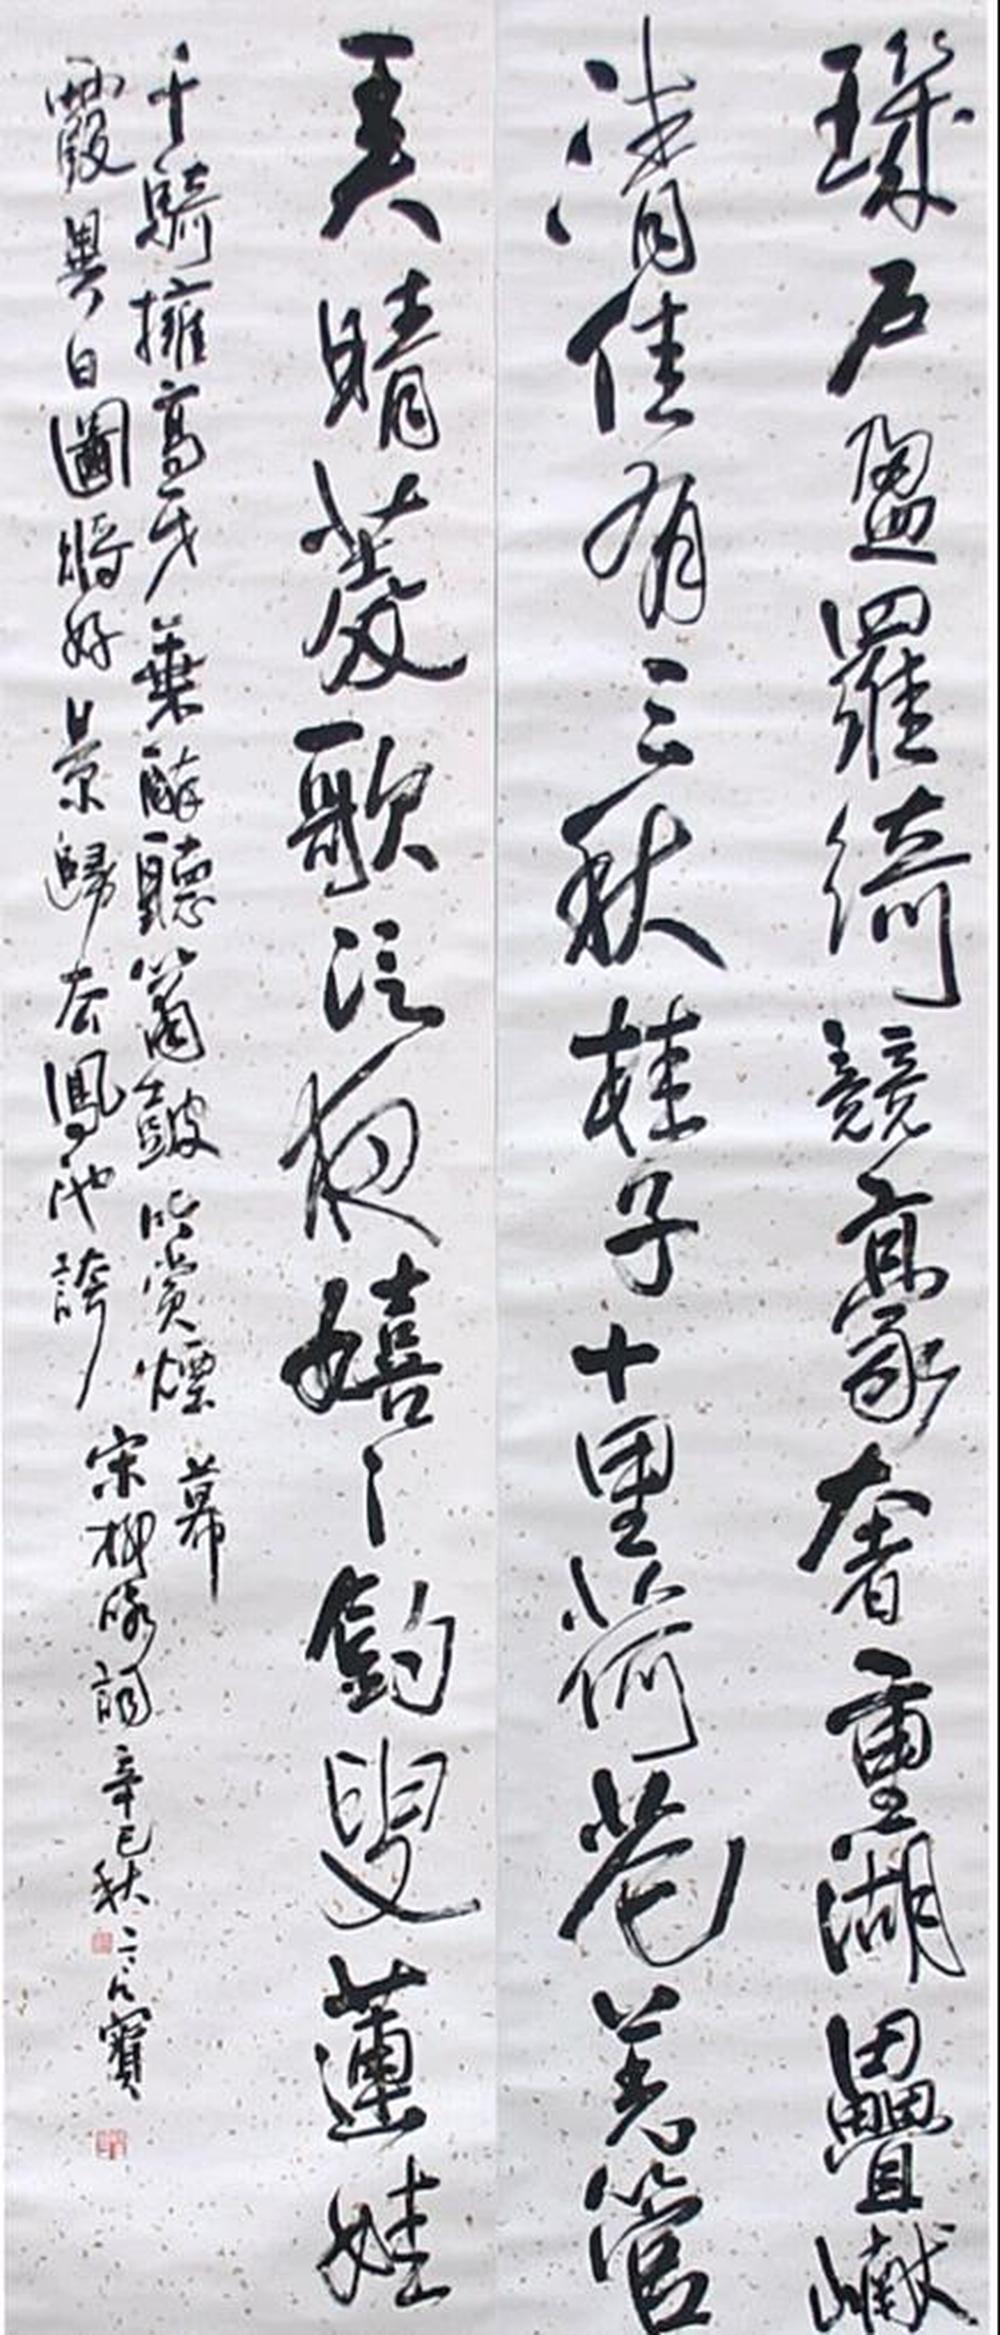 璣戶盈羅綺競豪奢重湖疊巘
清佳有三秋桂子十里荷花羌管
弄晴菱歌泛夜嬉〻釣叟蓮娃
千騎擁高牙乘醉聽簫鼓吟賞煙
霞異日圖將好景歸去鳳池誇
幕
宋柳詞辛巳秋寶